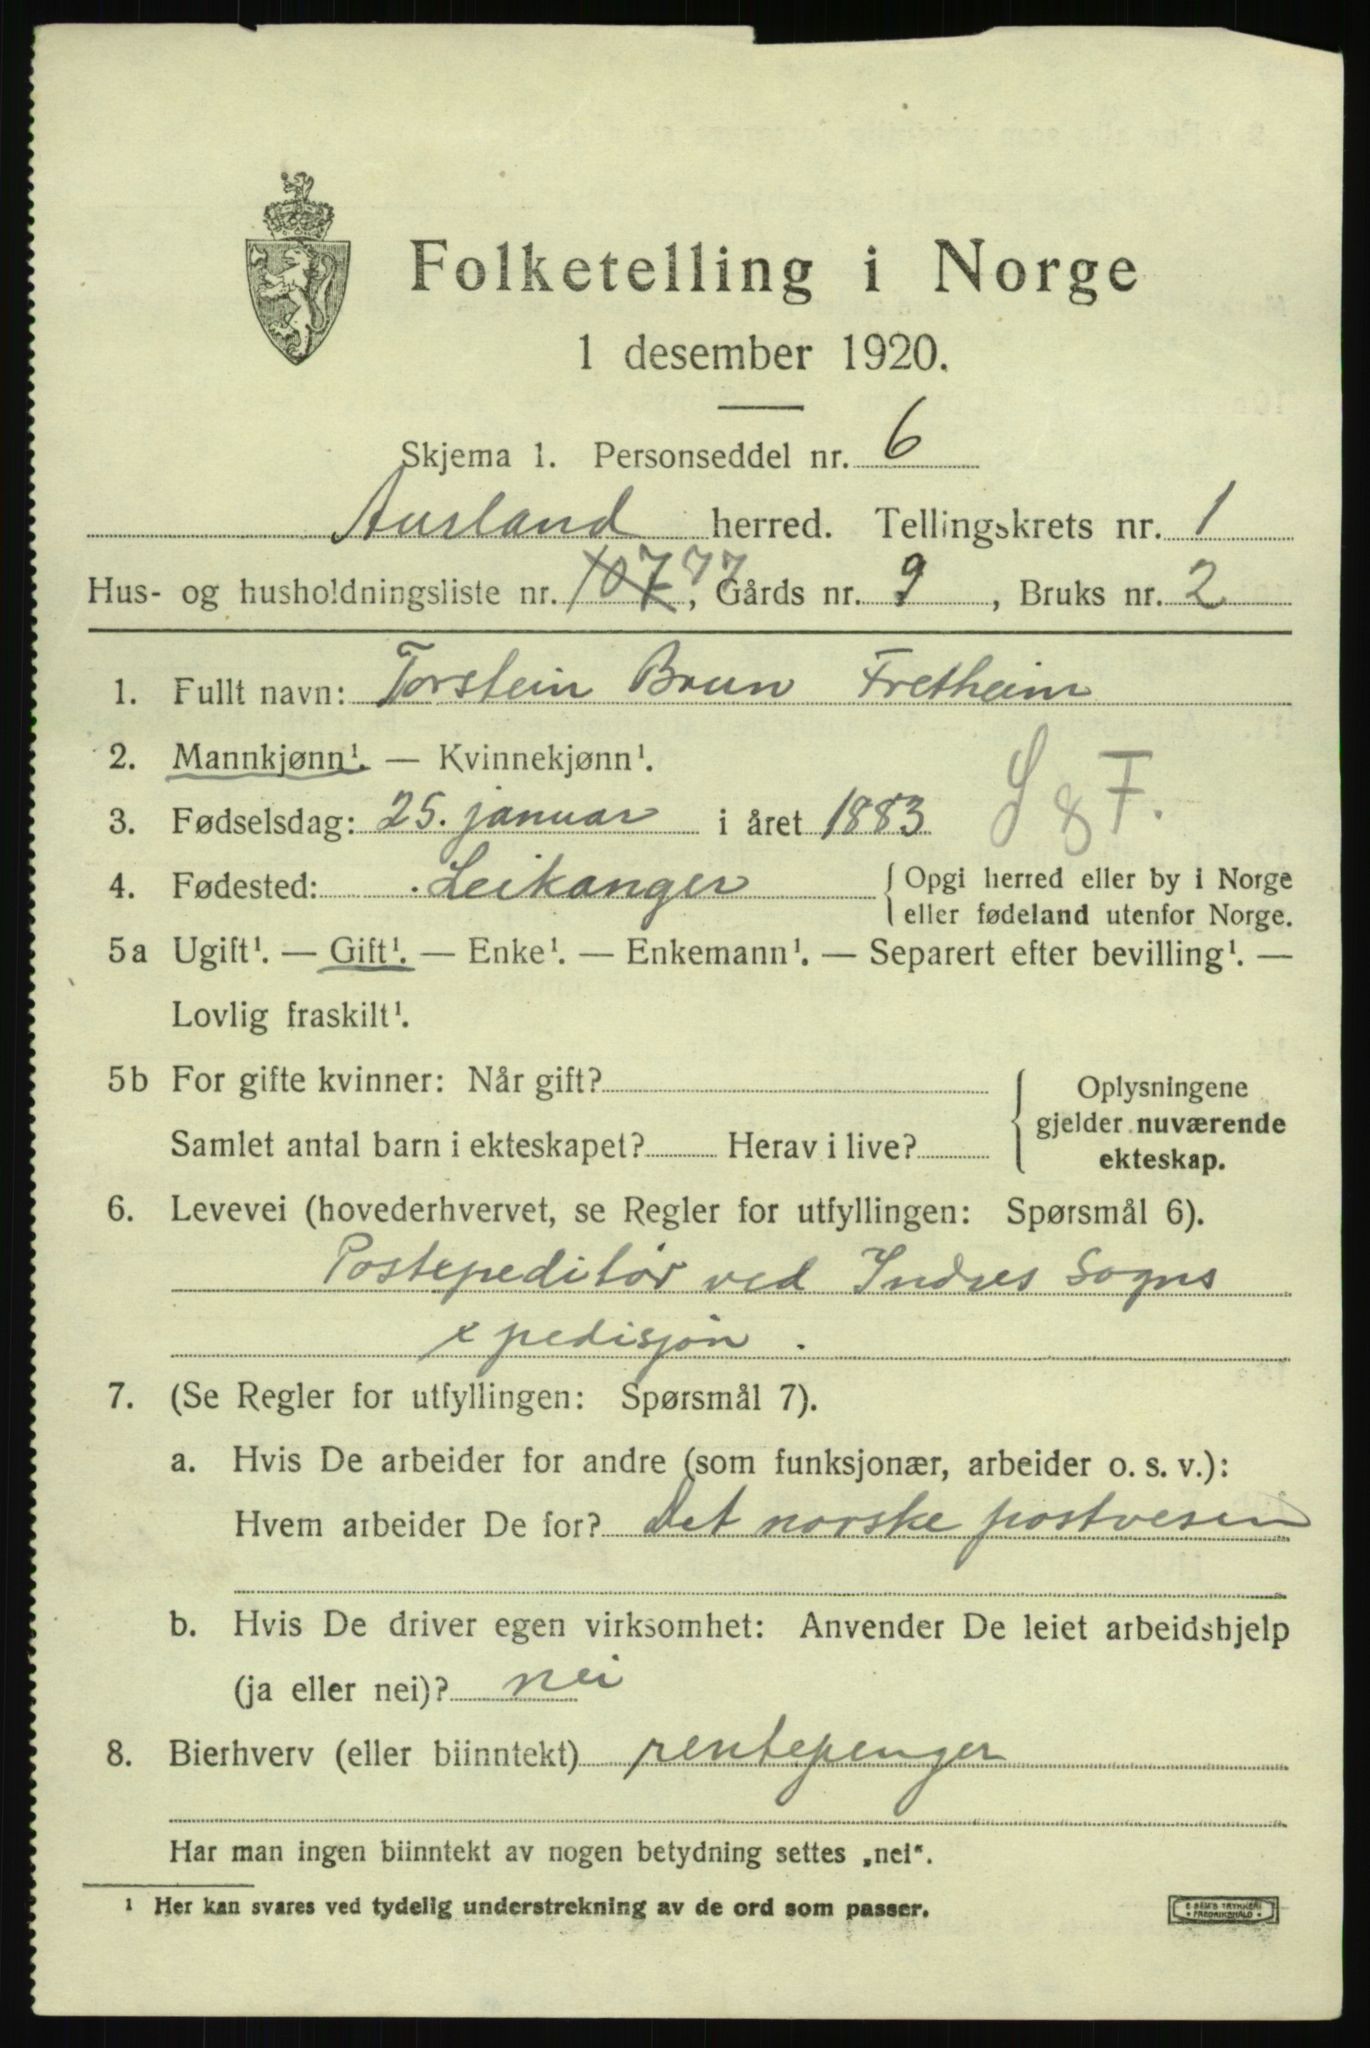 Folketelling i Norge
1 desember 1920.
Skjema 1. Personseddel nr. 6
Aurland herred. Tellingskrets nr. 1
Hus- og husholdningsliste nr. 107 77, Gårds nr. 9, Bruks nr. 2
1. Fullt navn: Torstein Brun Fretheim
2. Mannkjønn¹. — Kvinnekjønn¹.
3. Fødselsdag: 25. januar i året 1883
4. Fødested: Leikanger { Opgi herred eller by i Norge
eller fødeland utenfor Norge.
5a Ugift¹. — Gift¹. — Enke¹. — Enkemann¹. — Separert efter bevilling¹. —
Lovlig fraskilt¹.
5b For gifte kvinner: Når gift?
Samlet antal barn i ekteskapet? Herav i live?
Oplysningene
gjelder nuværende
ekteskap.
6. Levevei (hovederhvervet, se Regler for utfyllingen: Spørsmål 6).
Postepeditør ved Indres Sogns
xpedisjon.
7. (Se Regler for utfyllingen: Spørsmål 7).
a. Hvis De arbeider for andre (som funksjonær, arbeider o. s. v.):
Hvem arbeider De for? Det norske postvesen
b. Hvis De driver egen virksomhet: Anvender De leiet arbeidshjelp
(ja eller nei)? nei
8. Bierhverv (eller biinntekt) rentepenger
Har man ingen biinntekt av nogen betydning settes „nei“.
¹ Her kan svares ved tydelig understrekning av de ord som passer.